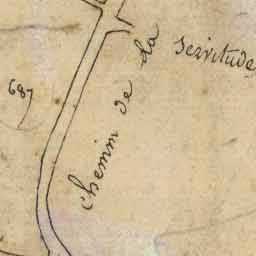 687
chemin de la servitude